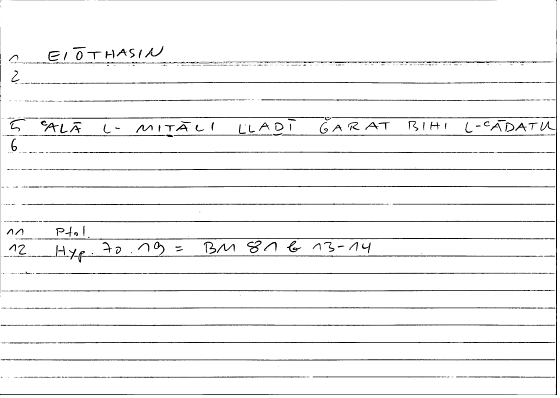 1 EIŌTHASIN
2
5 ʿALĀ L-MIṮĀLI LLAḎĪ ǦARAT BIHI L-ʿĀDATU
6
11 Ptol.
12 Hyp. 70.19 = BM 81 b 13-14